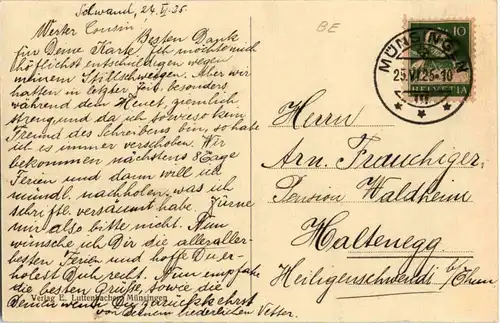 Schwand, 24. VI. 25.
Werter Cousin!
Besten Dank
für Deine Karte. Ich möchte mich
höflichst entschuldigen wegen
meinem Stillschweigen. Aber wir
hatten in letzter Zeit, besonders
während dem Heuet, ziemlich
streng und da ich sowieso kein
Freund des Schreibens bin, so habe
ich es immer verschoben. Wir
bekommen nächstens 8 Tage
Ferien und dann will ich
mündl. nachholen, was ich
schriftl. versäumt habe. Zürne
mir also bitte nicht. Nun
wünsche ich Dir die alleraller-
besten Ferien und hoffe Du er-
holest Dich recht. Nun empfahe
die besten Grüße, sowie die
Deinen wenn Du zurückkehrst
von Deinem liederlichen Vetter.
Verlag E. Luttenbacher, Münsingen
BE
MÜNSINGEN
25.VI.25-10
10
HELVETIA
Herrn
Arn. Trauchiger
Pension Waldheim
Haltenegg
Heiligenschwendi b/Thun